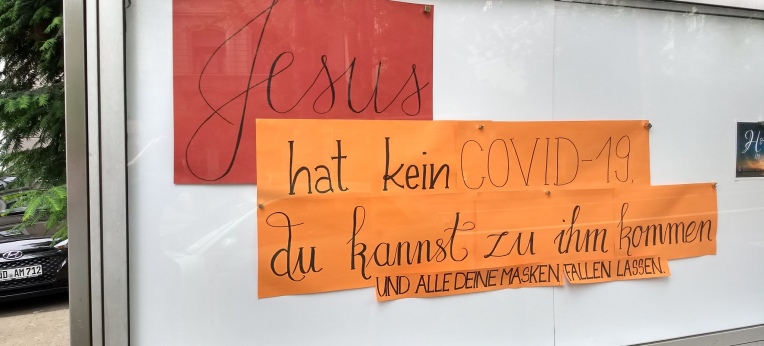 Jesus
hat kein COVID-19,
du kannst zu ihm kommen
UND ALLE DEINE MASKEN FALLEN LASSEN.
AM 712